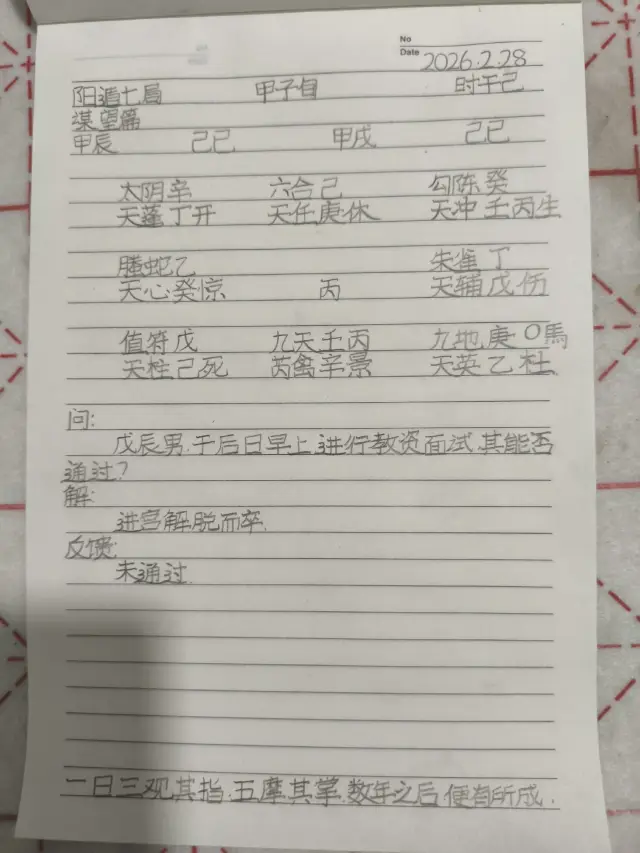 No
Date 2026.2.28
阳遁七局 甲子自 时干己
谋望篇
甲辰 己巳 甲戌 己巳
太阴辛 六合己 勾陈癸
天蓬丁开 天任庚休 天冲壬丙生
螣蛇乙 朱雀丁
天心癸惊 丙 天辅戊伤
值符戊 九天壬丙 九地庚〇馬
天柱己死 芮禽辛景 天英乙杜
问:
戊辰男,于后日早上,进行教资面试,其能否
通过?
解:
进宫解脱而卒.
反馈:
未通过.
一日三观其指,五摩其掌,数年之后,便有所成.